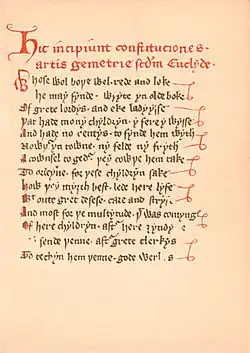 Hic incipiunt constituciones
artis gemetrie secdm Euclyde.
Whose wol boþe wel rede and loke
He may fynde wryte yn olde boke
Of grete lordys and eke ladyysse
Þat hade mony chyldryn y fere y wysse
And hade no rentys to fynde hem wyth
Nowþur yn towne ny felde ny fryth
A cownsel togedur þey cowþe hem take
To ordeyne for þese chyldryn sake
How þey myth best lede here lyfe
Wtoute gret desese care and stryf
And most for þe multytude þt was comyng
Of here chyldryn aftr here
sende þenne aftr grete clerkys
To techyn hem þenne gode